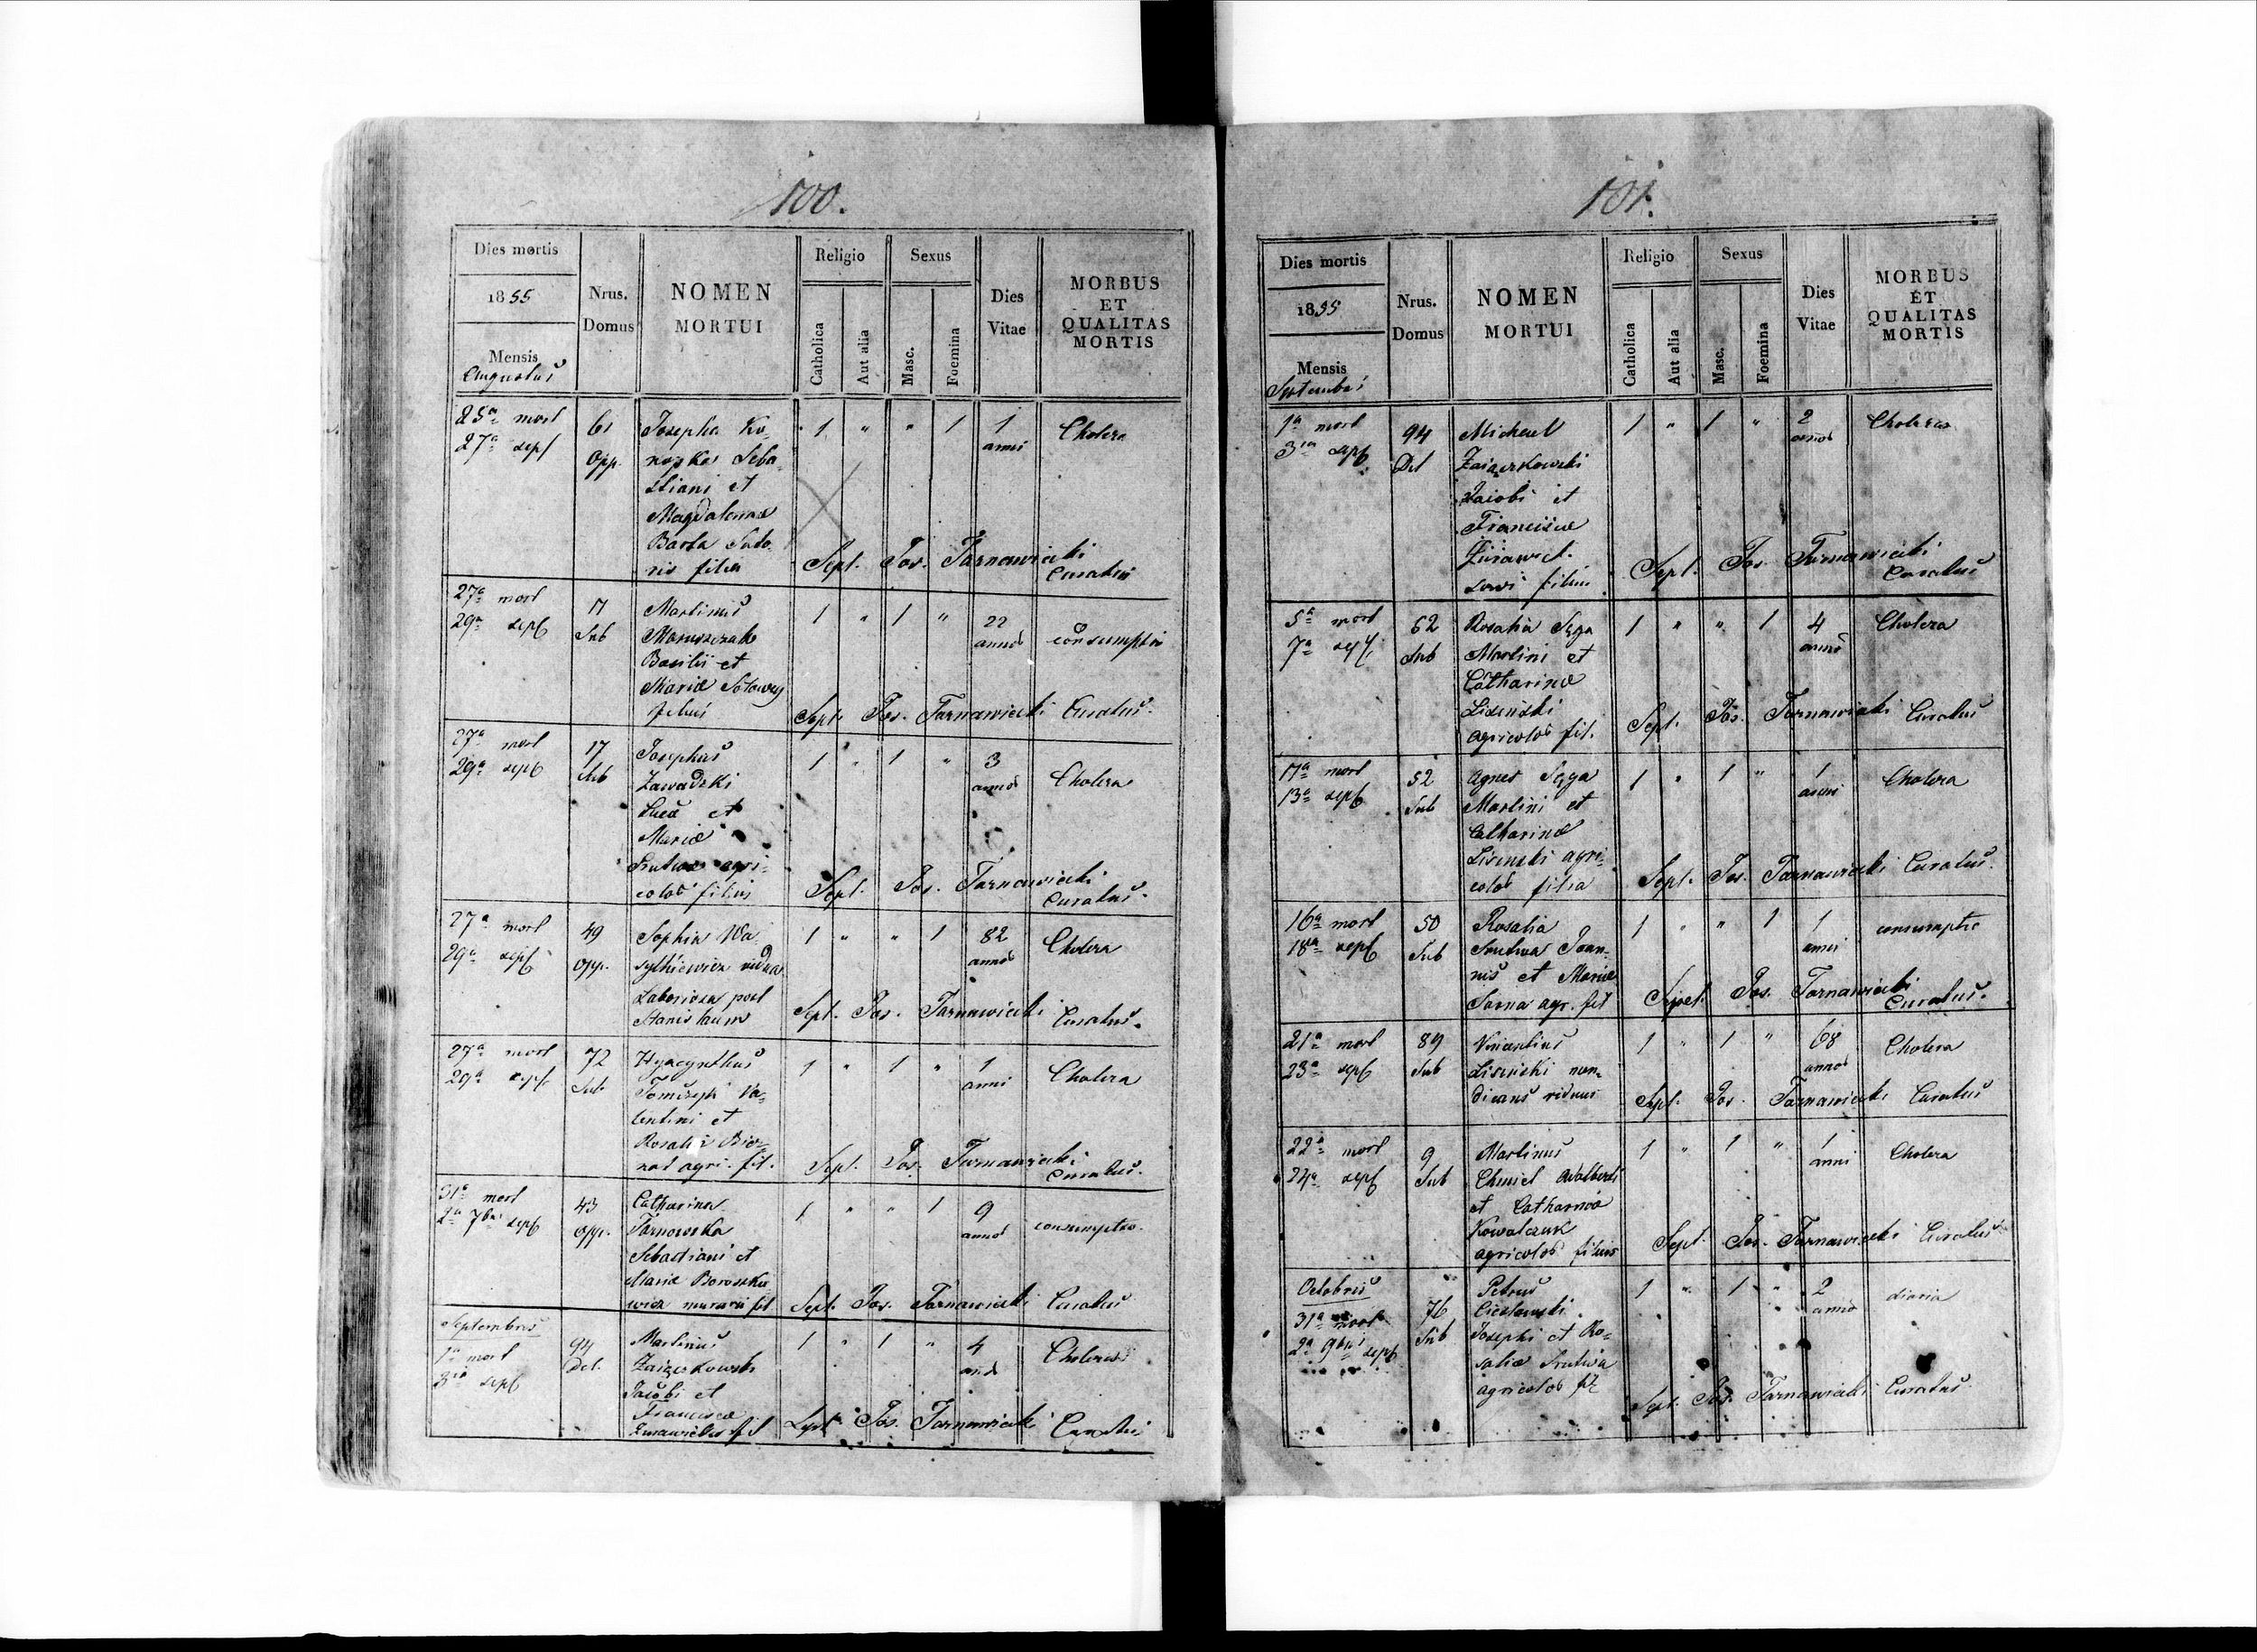 100.
Dies mortis
1855
Mensis
Augustus
Nrus.
Domus
NOMEN
MORTUI
Religio
Catholica
Aut alia
Sexus
Masc.
Foemina
Dies
Vitae
MORBUS
ET
QUALITAS
MORTIS
25a mort 61 Josepha Ko- 1 " " 1 1 Cholera
27a sepf Opp. nopka Seba- anni
stiani et
Magdalenae
Barta Suto-
ris filia Sept. Jos. Tarnawiecki Curatus
27a mort 17 Martinus 1 " 1 " 22 consumptio
29a sepf Sub annos
Basilii et
Mariae Solowey
filius Sept. Jos. Tarnawiecki Curatus.
27a mort 17 Josephus 1 " 1 " 3 Cholera
29a sepf Sub Zawadzki annos
Lucae et
Mariae
Srutwa agri-
colae filius Sept. Jos. Tarnawiecki Curatus.
27a mort 49 Sophia Wa 1 " " 1 82 Cholera
29a sepf opp. sylkiewicz vidua annos
post
Stanislaum Sept. Jos. Tarnawiecki Curatus.
27a mort 72 Hyacynthus 1 " 1 " 1 Cholera
29a sepf Sub Tomczyk Va- anni
lentini et
Rosaliae Bier-
nat agri. fil. Sept. Jos. Tarnawiecki Curatus.
31a mort 43 Catharina 1 " " 1 9 consumptio.
2a 7bris sepf opp. Tarnowska annos
Sebastiani et
Mariae
murarii fil Sept. Jos. Tarnawiecki Curatus
Septembris
1a mort 94 Martinus 1 " 1 " 4 Cholera
3a sepf Del. Zaiączkowski
Jacobi et
Franciscae
fil Sept. Jos. Tarnawiecki Curatus
101.
Dies mortis
1855
Mensis
Septembris
Nrus.
Domus
NOMEN
MORTUI
Religio
Catholica
Aut alia
Sexus
Masc.
Foemina
Dies
Vitae
MORBUS
ET
QUALITAS
MORTIS
1a mort 94 Michael 1 " 1 " 2 Cholera
3a sepf Del Zaiączkowski annos
Jacobi et
Franciscae
filius Sept. Jos. Tarnawiecki Curatus
5a mort 62 Rosalia 1 " " 1 4 Cholera
7a sepf. Sub Martini et annos
Catharinae
Lisinski
agricolae fil. Sept. Jos. Tarnawiecki Curatus
11a mort 52 Agnes 1 " 1 " 1 Cholera
13a sepf Sub Martini et anni
Catharinae
Lisinski agri-
colae filia Sept. Jos. Tarnawiecki Curatus.
16a mort 50 Rosalia 1 " " 1 1 consumptio
18a sepf Sub Srutwa Joan- anni
nis et Mariae
Sarna agr. fil Sept. Jos. Tarnawiecki Curatus.
21a mort 89 Vincentius 1 " 1 " 68 Cholera
23a sepf Sub Lisinski men- annos
dicans viduus Sept. Jos. Tarnawiecki Curatus
22a mort 9 Martinus 1 " 1 " 1 Cholera
24a sepf Sub Chmiel Adalberti anni
et Catharinae
Kowalczuk
agricolae filius Sept. Jos. Tarnawiecki Curatus
Octobris Petrus 1 " 1 " 2 diaria
31a mort 76 Cieslowski annos
2a 9bris sepf Sub Josephi et Ro-
saliae Srutwa
agricolae fil Sept. Jos. Tarnawiecki Curatus.